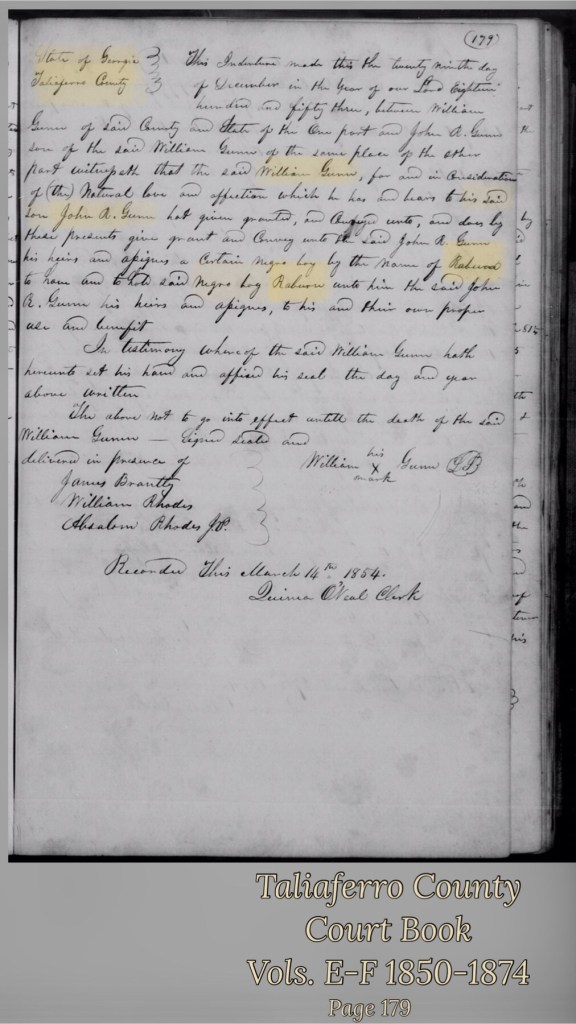 (179)
State of Georgia
Taliaferro County
This Indenture made this the twenty ninth day
of December in the Year of our Lord Eighteen
hundred and fifty three, between William
Gunn of said County and State of the One part and John R. Gunn
son of the said William Gunn of the same place of the other
part witnesseth that the said William Gunn, for and in Consideration
of (the) Natural love and affection which he has and bears to his said
son John R. Gunn hat given granted, and Conveyed unto, and does by
these presents give grant and Convey unto the said John R. Gunn
his heirs and assignes a Certain Negro boy by the name of
to have and to hold said Negro boy Raburn unto him the said John
R. Gunn his heirs and assignes, to his and their own proper
use and benefit
In testimony whereof the said William Gunn hath
hereunto set his hand and affixed his seal the day and year
above written
The above not to go into effect untill the death of the said
William Gunn — Signed Sealed and
delivered in presence of
his
William X Gunn
mark
James Brantly
William Rhodes
Absalom Rhodes J.P.
Recorded This March 14th 1854.
O'Neal Clerk
Taliaferro County
Court Book
Vols. E-F 1850-1874
Page 179